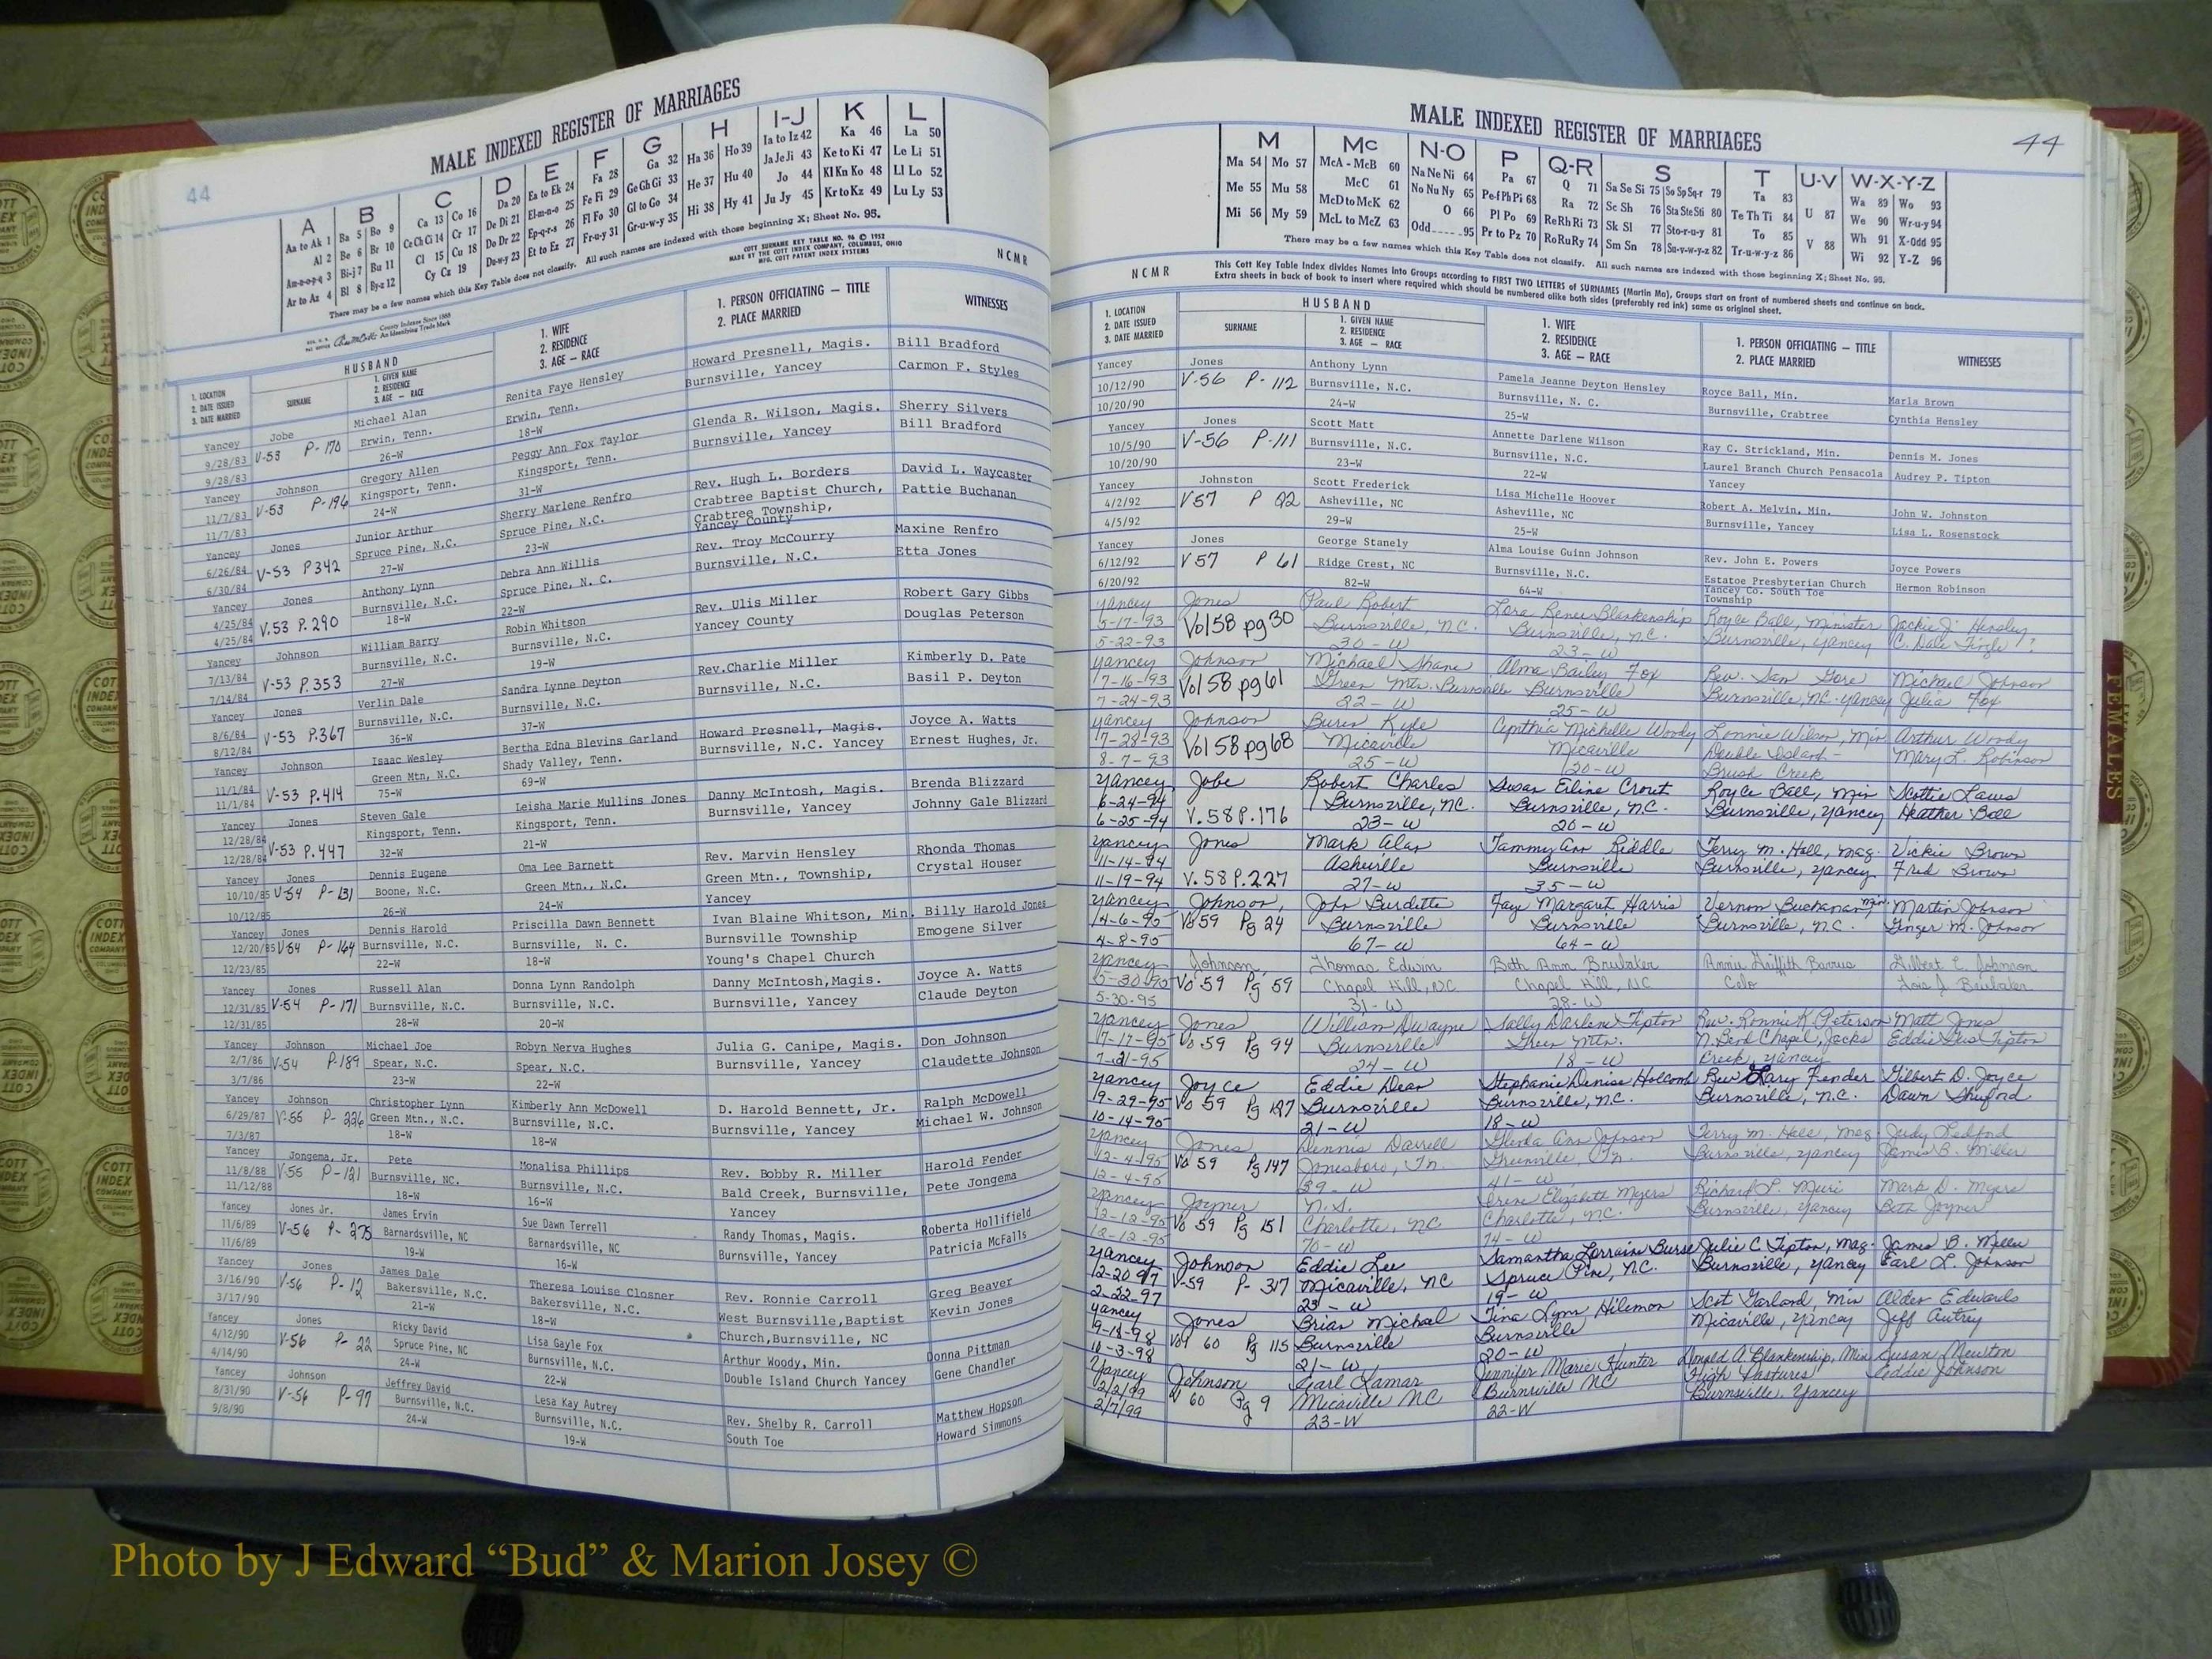 MALE INDEXED REGISTER OF MARRIAGES
44
A B C D E F G H I-J K L
Aa to Ak 1 Ba 5 Bo 9 Ca 13 Co 16 Da 20 Ea to Ek 24 Fa 28 Ga 32 Ha 36 Ho 39 Ia to Iz 42 Ka 46 La 50
Al 2 Be 6 Br 10 Ce Ch Ci 14 Cr 17 De Di 21 El-m-n-o 25 Fe Fi 29 Ge Gh Gi 33 He 37 Hu 40 Ja Je Ji 43 Ke to Ki 47 Le Li 51
Am-n-o-p-q 3 Bi-j 7 Bu 11 Cl 15 Cu 18 Do Dr 22 Ep-q-r-s 26 Fl Fo 30 Gl to Go 34 Hi 38 Hy 41 Jo 44 Kl Kn Ko 48 Ll Lo 52
Ar to Az 4 Bl 8 By-z 12 Cy Cz 19 Du-w-y 23 Et to Ez 27 Fr-u-y 31 Gr-u-w-y 35 Ju Jy 45 Kr to Kz 49 Lu Ly 53
There may be a few names which this Key Table does not classify. All such names are indexed with those beginning X; Sheet No. 95.
County Indexes Since 1888
An Identifying Trade Mark
COTT SURNAME KEY TABLE NO. 96 © 1952
MADE BY THE COTT INDEX COMPANY, COLUMBUS, OHIO
MFG. COTT PATENT INDEX SYSTEMS
NCMR
1. LOCATION
2. DATE ISSUED
3. DATE MARRIED
HUSBAND
SURNAME
1. GIVEN NAME
2. RESIDENCE
3. AGE — RACE
1. WIFE
2. RESIDENCE
3. AGE — RACE
1. PERSON OFFICIATING — TITLE
2. PLACE MARRIED
WITNESSES
Yancey Jobe Michael Alan Renita Faye Hensley Howard Presnell, Magis. Bill Bradford
9/28/83 V-53 P-170 Erwin, Tenn. Erwin, Tenn. Burnsville, Yancey Carmon F. Styles
9/28/83 26-W 18-W
Yancey Johnson Gregory Allen Peggy Ann Fox Taylor Glenda R. Wilson, Magis. Sherry Silvers
11/7/83 V-53 P-196 Kingsport, Tenn. Kingsport, Tenn. Burnsville, Yancey Bill Bradford
11/7/83 24-W 31-W
Yancey Jones Junior Arthur Sherry Marlene Renfro Rev. Hugh L. Borders David L. Waycaster
6/26/84 V-53 P342 Spruce Pine, N.C. Spruce Pine, N.C. Crabtree Baptist Church, Pattie Buchanan
6/30/84 27-W 23-W Crabtree Township,
Yancey County
Yancey Jones Anthony Lynn Debra Ann Willis Rev. Troy McCourry Maxine Renfro
4/25/84 V.53 P.290 Burnsville, N.C. Spruce Pine, N. C. Burnsville, N.C. Etta Jones
4/25/84 18-W 22-W
Yancey Johnson William Barry Robin Whitson Rev. Ulis Miller Robert Gary Gibbs
7/13/84 V-53 P.353 Burnsville, N.C. Burnsville, N.C. Yancey County Douglas Peterson
7/14/84 27-W 19-W
Yancey Jones Verlin Dale Sandra Lynne Deyton Rev.Charlie Miller Kimberly D. Pate
8/6/84 V-53 P.367 Burnsville, N.C. Burnsville, N.C. Burnsville, N.C. Basil P. Deyton
8/12/84 36-W 37-W
Yancey Johnson Isaac Wesley Bertha Edna Blevins Garland Howard Presnell, Magis. Joyce A. Watts
11/1/84 V-53 P.414 Green Mtn, N.C. Shady Valley, Tenn. Burnsville, N.C. Yancey Ernest Hughes, Jr.
11/1/84 75-W 69-W
Yancey Jones Steven Gale Leisha Marie Mullins Jones Danny McIntosh, Magis. Brenda Blizzard
12/28/84 V-53 P.447 Kingsport, Tenn. Kingsport, Tenn. Burnsville, Yancey Johnny Gale Blizzard
12/28/84 32-W 21-W
Yancey Jones Dennis Eugene Oma Lee Barnett Rev. Marvin Hensley Rhonda Thomas
10/10/85 V-54 P-131 Boone, N.C. Green Mtn., N.C. Green Mtn., Township, Crystal Houser
10/12/85 26-W 24-W Yancey
Yancey Jones Dennis Harold Priscilla Dawn Bennett Ivan Blaine Whitson, Min. Billy Harold Jones
12/20/85 V-54 P-164 Burnsville, N.C. Burnsville, N. C. Burnsville Township Emogene Silver
12/23/85 22-W 18-W Young's Chapel Church
Yancey Jones Russell Alan Donna Lynn Randolph Danny McIntosh,Magis. Joyce A. Watts
12/31/85 V-54 P-171 Burnsville, N.C. Burnsville, N.C. Burnsville, Yancey Claude Deyton
12/31/85 28-W 20-W
Yancey Johnson Michael Joe Robyn Nerva Hughes Julia G. Canipe, Magis. Don Johnson
2/7/86 V-54 P-189 Spear, N.C. Spear, N.C. Burnsville, Yancey Claudette Johnson
3/7/86 23-W 22-W
Yancey Johnson Christopher Lynn Kimberly Ann McDowell D. Harold Bennett, Jr. Ralph McDowell
6/29/87 V-55 P-226 Green Mtn., N.C. Burnsville, N.C. Burnsville, Yancey Michael W. Johnson
7/3/87 18-W 18-W
Yancey Jongema, Jr. Pete Monalisa Phillips Rev. Bobby R. Miller Harold Fender
11/8/88 V-55 P-121 Burnsville, NC. Burnsville, N.C. Bald Creek, Burnsville, Pete Jongema
11/12/88 18-W 16-W Yancey
Yancey Jones Jr. James Ervin Sue Dawn Terrell Randy Thomas, Magis. Roberta Hollifield
11/6/89 V-56 P-275 Barnardsville, NC Barnardsville, NC Burnsville, Yancey Patricia McFalls
11/6/89 19-W 16-W
Yancey Jones James Dale Theresa Louise Closner Rev. Ronnie Carroll Greg Beaver
3/16/90 V-56 P-12 Bakersville, N.C. Bakersville, N.C. West Burnsville,Baptist Kevin Jones
3/17/90 21-W 18-W Church,Burnsville, NC
Yancey Jones Ricky David Lisa Gayle Fox Arthur Woody, Min. Donna Pittman
4/12/90 V-56 P-22 Spruce Pine, NC Burnsville, N.C. Double Island Church Yancey Gene Chandler
4/14/90 24-W 22-W
Yancey Johnson Jeffrey David Lesa Kay Autrey Rev. Shelby R. Carroll Matthew Hopson
8/31/90 V-56 P-97 Burnsville, N.C. Burnsville, N.C. South Toe Howard Simmons
9/8/90 24-W 19-W
MALE INDEXED REGISTER OF MARRIAGES
44
M Mc N-O P Q-R S T U-V W-X-Y-Z
Ma 54 Mo 57 McA - McB 60 Na Ne Ni 64 Pa 67 Q 71 Sa Se Si 75 So Sp Sq-r 79 Ta 83 U 87 Wa 89 Wo 93
Me 55 Mu 58 McC 61 No Nu Ny 65 Pe-f Ph Pi 68 Ra 72 Sc Sh 76 Sta Ste Sti 80 Te Th Ti 84 V 88 We 90 Wr-u-y 94
Mi 56 My 59 McD to McK 62 O 66 Pl Po 69 Re Rh Ri 73 Sk Sl 77 Sto-r-u-y 81 To 85 Wh 91 X-Odd 95
McL to McZ 63 Odd 95 Pr to Pz 70 Ro Ru Ry 74 Sm Sn 78 Su-v-w-y-z 82 Tr-u-w-y-z 86 Wi 92 Y-Z 96
There may be a few names which this Key Table does not classify. All such names are indexed with those beginning X; Sheet No. 95.
NCMR
This Cott Key Table Index divides Names into Groups according to FIRST TWO LETTERS of SURNAMES (Martin Ma), Groups start on front of numbered sheets and continue on back.
Extra sheets in back of book to insert where required which should be numbered alike both sides (preferably red ink) same as original sheet.
1. LOCATION
2. DATE ISSUED
3. DATE MARRIED
HUSBAND
SURNAME
1. GIVEN NAME
2. RESIDENCE
3. AGE — RACE
1. WIFE
2. RESIDENCE
3. AGE — RACE
1. PERSON OFFICIATING — TITLE
2. PLACE MARRIED
WITNESSES
Yancey Jones Anthony Lynn Pamela Jeanne Deyton Hensley Royce Ball, Min. Marla Brown
10/12/90 V-56 P-112 Burnsville, N.C. Burnsville, N. C. Burnsville, Crabtree Cynthia Hensley
10/20/90 24-W 25-W
Yancey Jones Scott Matt Annette Darlene Wilson Ray C. Strickland, Min. Dennis M. Jones
10/5/90 V-56 P-111 Burnsville, N.C. Burnsville, N.C. Laurel Branch Church Pensacola Audrey P. Tipton
10/20/90 23-W 22-W Yancey
Yancey Johnston Scott Frederick Lisa Michelle Hoover Robert A. Melvin, Min. John W. Johnston
4/2/92 V57 P Q2 Asheville, NC Asheville, NC Burnsville, Yancey Lisa L. Rosenstock
4/5/92 29-W 25-W
Yancey Jones George Stanely Alma Louise Guinn Johnson Rev. John E. Powers Joyce Powers
6/12/92 V57 P 61 Ridge Crest, NC Burnsville, N.C. Estatoe Presbyterian Church Hermon Robinson
6/20/92 82-W 64-W Yancey Co. South Toe
Township
Yancey Jones Paul Robert Lora Renee Blankenship Royce Ball, Minister Jackie J. Hensley
5-17-93 Vol 58 pg 30 Burnsville, N.C. Burnsville, N.C. Burnsville, Yancey C. Dale Tingle?
5-22-93 30-W 23-W
Yancey Johnson Michael Shane Alma Bailey Fox Rev. Sam Gore Michael Johnson
7-16-93 Vol 58 pg 61 Green Mtn. Burnsville Burnsville Burnsville, NC. Yancey Julia Fox
7-24-93 22-W 25-W
Yancey Johnson Buren Kyle Cynthia Michelle Woody Lonnie Wilson, Min Arthur Woody
7-28-93 Vol 58 pg 68 Micaville Micaville Double Island- Mary L. Robinson
8-7-93 25-W 20-W Brush Creek
Yancey Jobe Robert Charles Susan Eiline Crout Royce Ball, Min Scottie Laws
6-24-94 V. 58 P. 176 Burnsville, NC. Burnsville, N.C. Burnsville, Yancey Heather Ball
6-25-94 23-W 20-W
Yancey Jones Mark Alan Tammy Ann Riddle Terry M. Hall, Mag. Vickie Brown
11-14-94 V. 58 P. 227 Asheville Burnsville Burnsville, Yancey Fred Brown
11-19-94 27-W 35-W
Yancey Johnson, John Burdette Faye Margaret Harris Vernon Buchanan Min. Martin Johnson
4-6-95 Vo 59 Pg 24 Burnsville Burnsville Burnsville, N.C. Ginger M. Johnson
4-8-95 67-W 64-W
Yancey Johnson, Thomas Edwin Beth Ann Brubaker Annie Griffith Barrus Gilbert L. Johnson
5-30-95 Vo 59 Pg 59 Chapel Hill, NC Chapel Hill, NC Celo J. Brubaker
5-30-95 31-W 28-W
Yancey Jones William Dwayne Sally Darlene Tipton Rev. Ronnie K Peterson Matt Jones
7-17-95 Vo 59 Pg 94 Burnsville Green Mtn. N. Bend Chapel, Jacks Eddie Tipton
7-21-95 24-W 18-W Creek, Yancey
Yancey Joyce Eddie Dean Stephanie Denise Holcomb Rev Lary Fender Gilbert D. Joyce
9-29-95 Vo 59 Pg 127 Burnsville Burnsville, N.C. Burnsville, N.C. Dawn Shuford
10-14-95 21-W 18-W
Yancey Jones Dennis Darrell Glenda Ann Johnson Terry M. Hall, Mag. Judy Ledford
12-4-95 Vo 59 Pg 147 Jonesboro, Tn. Greenville, Tn. Burnsville, Yancey James B. Miller
12-4-95 39-W 41-W
Yancey Joyner N.S. Irene Elizabeth Myers Richard L. Muri Mark D. Myers
12-12-95 Vo 59 Pg 151 Charlotte, NC Charlotte, N.C. Burnsville, Yancey Beth Joyner
12-12-95 70-W 74-W
Yancey Johnson Eddie Lee Samantha Lorraine Burse Julie C. Tipton, Mag. James B. Miller
2-20-97 V-59 P-317 Micaville, NC Spruce Pine, N.C. Burnsville, Yancey Earl L. Johnson
2-22-97 23-W 19-W
Yancey Jones Brian Micheal Tina Lynn Hileman Scot Garland, Min Alder Edwards
9-18-98 Vol 60 Pg 115 Burnsville Burnsville Micaville, Yancey Jeff Autrey
10-3-98 21-W 20-W
Yancey Johnson Earl Lamar Jennifer Marie Hunter Donald A. Blankenship, Min Susan Newton
2/2/99 V 60 Pg 9 Micaville NC Burnsville NC High Pastures Eddie Johnson
2/7/99 23-W 22-W Burnsville, Yancey
FEMALES
Photo by J Edward “Bud” & Marion Josey ©